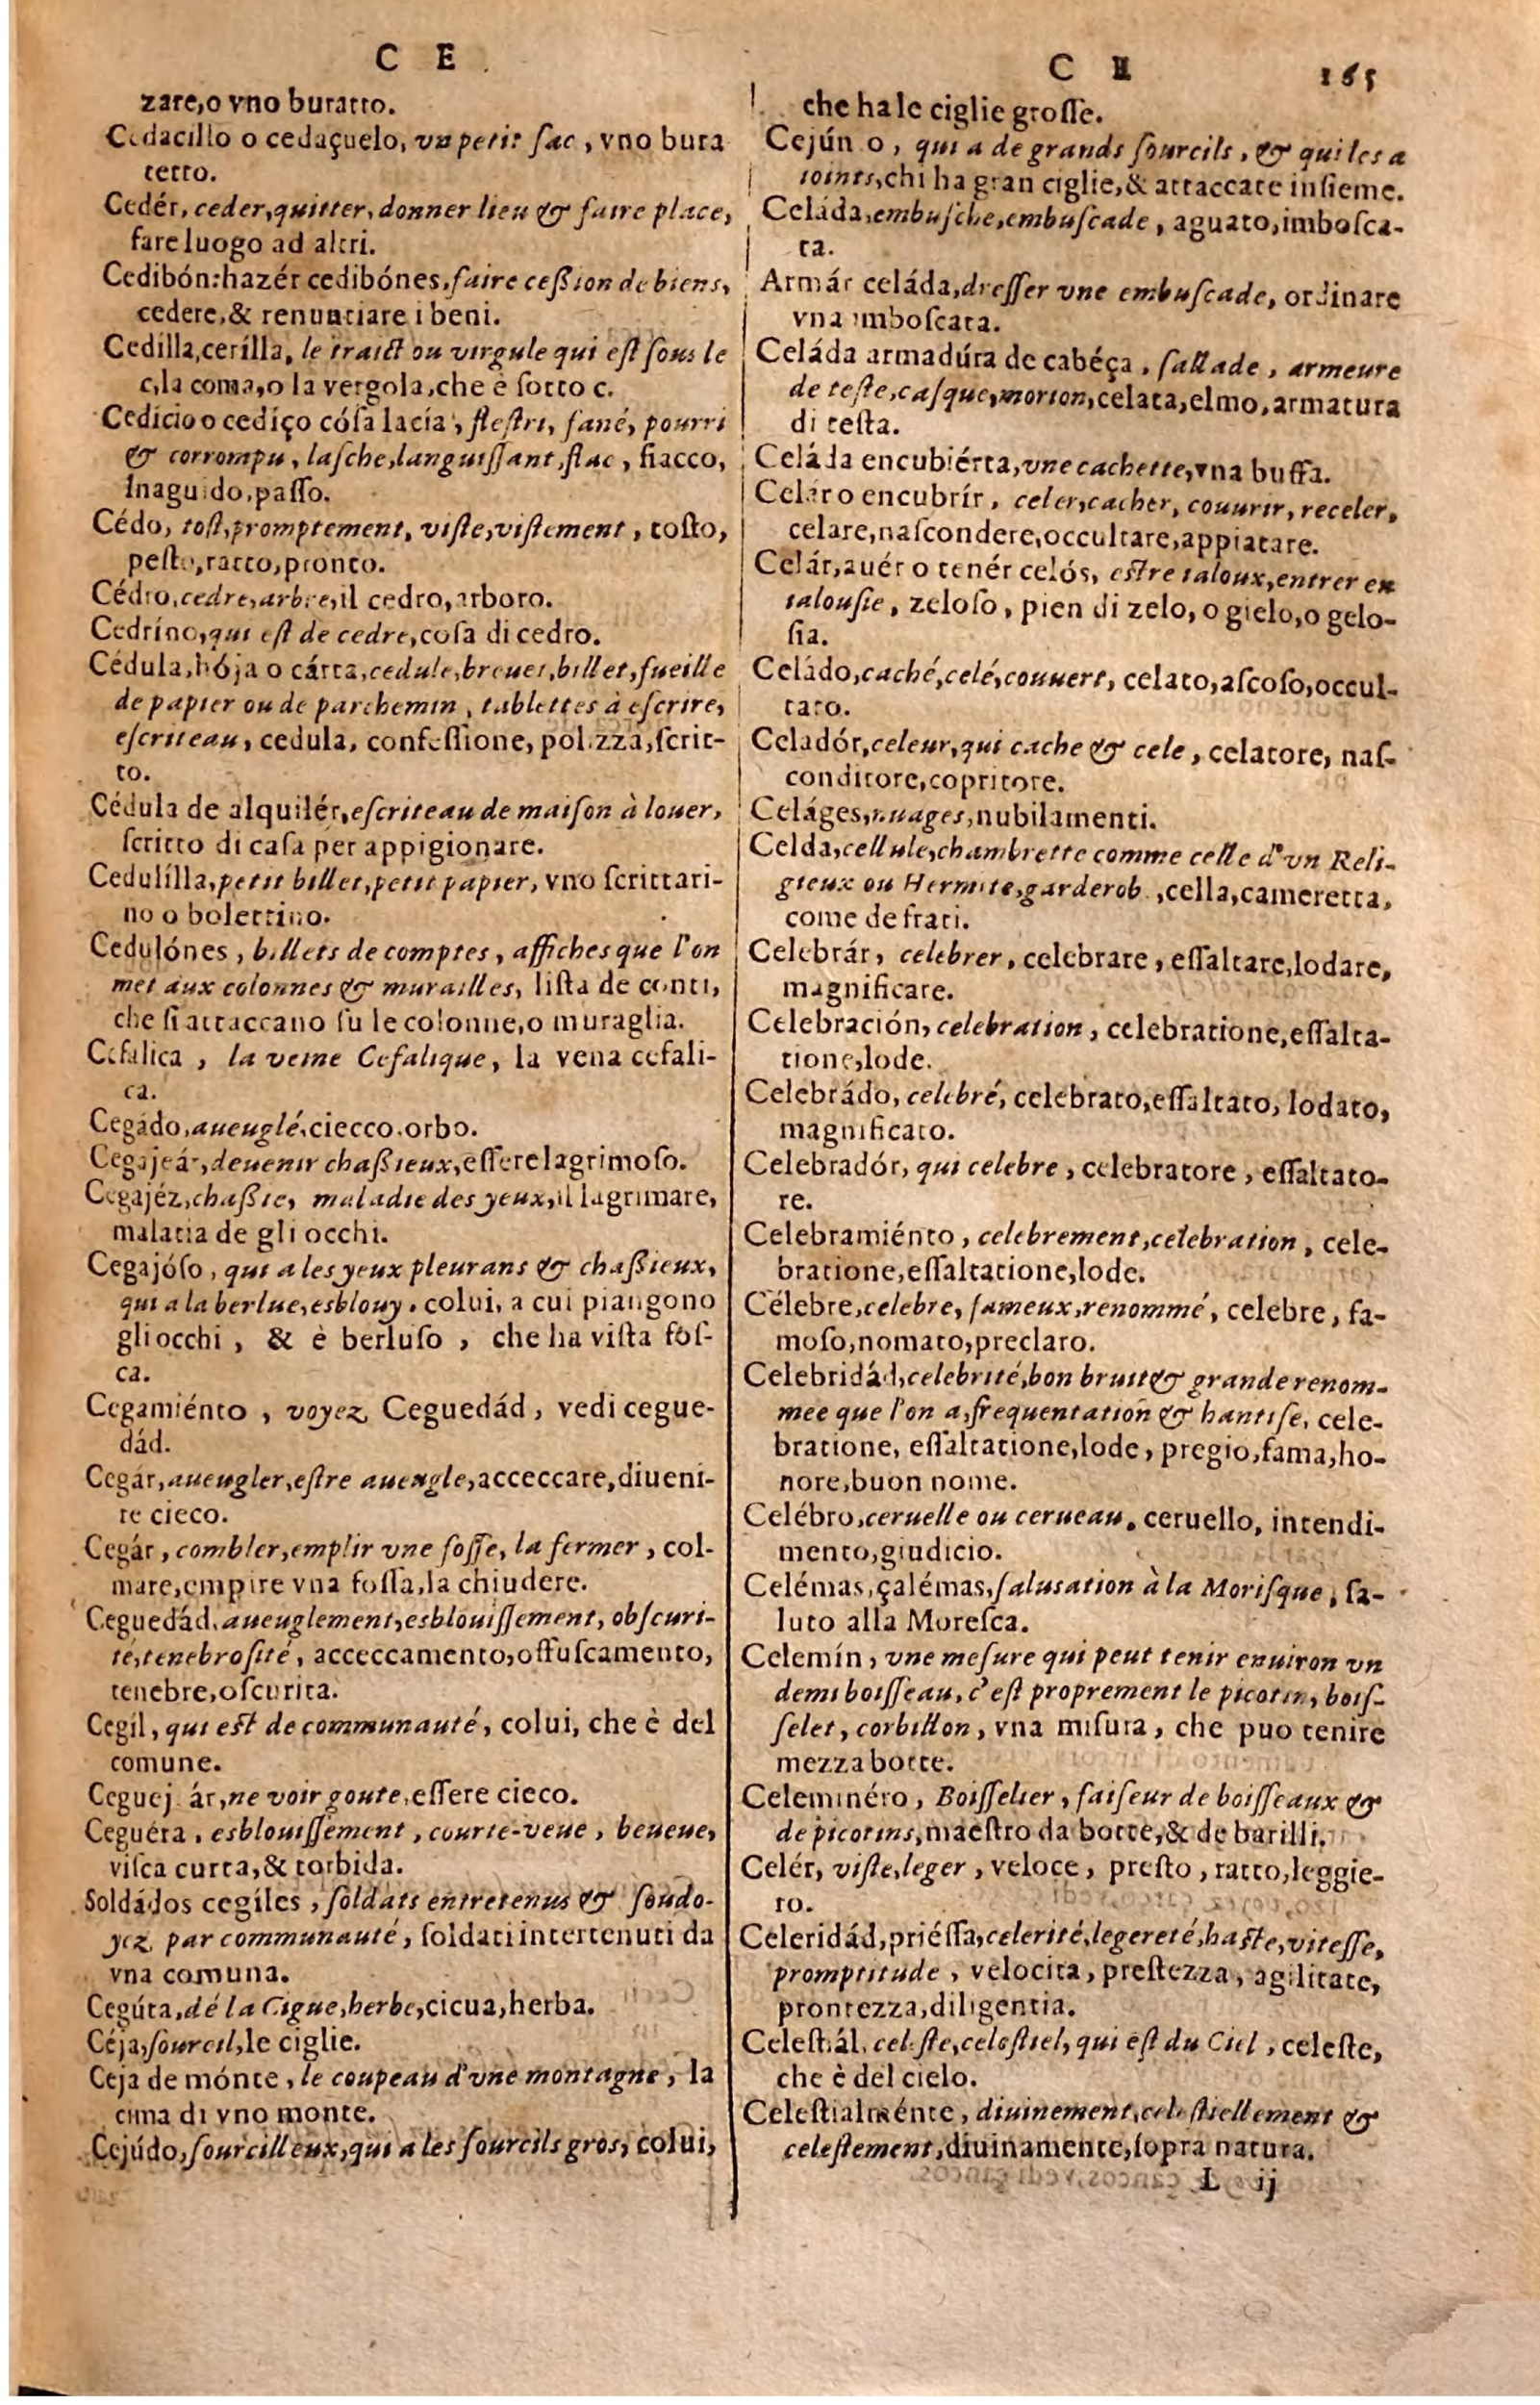 C E
zare,o vno buratto.
Cedacillo o cedaçuelo, vn petit ſac, vno bura
tetto.
Cedér, ceder,quitter, donner lieu & faire place,
fare luogo ad altri.
Cedibón:hazér cedibónes, faire ceßion de biens,
cedere,& renuntiare i beni.
Cedilla,cerílla, le traict ou virgule qui eſt ſous le
c,la coma,o la vergola,che è ſotto c.
Cedicio o cediço cóſa lacía, fleſtri, fané, pourri
& corrompu, laſche,languiſſant,flac, fiacco,
lnaguido,paſſo.
Cédo, toſt,promptement, viſte,viſtement, toſto,
peſto,ratto,pronto.
Cédro,cedre,arbre,il cedro,arboro.
Cedríno,qui eſt de cedre,coſa di cedro.
Cédula,hója o cárta,cedule,breuet,billet,fueille
de papier ou de parchemin, tablettes à eſcrire,
eſcriteau, cedula, confeſſione, polizza,ſcrit-
to.
Cédula de alquilér,eſcriteau de maiſon à louer,
ſcritto di caſa per appigionare.
Cedulílla,petit billet,petit papier, vno ſcrittari-
no o bolettino.
Cedulónes, billets de comptes, affiches que l'on
met aux colonnes & murailles, liſta de conti,
che ſi attaccano ſu le colonne,o muraglia.
Cefalica, la veine Cefalique, la vena cefali-
ca.
Cegádo,aueuglé,ciecco,orbo.
Cegajeár,deuenir chaßieux,eſſere lagrimoſo.
Cegajéz,chaßie, maladie des yeux,il lagrimare,
malatia de gli occhi.
Cegajóſo, qui a les yeux pleurans & chaßieux,
qui a la berlue,esblouy. colui, a cui piangono
gli occhi, & è berluſo, che ha viſta foſ-
ca.
Cegamiénto, voyez Ceguedád, vedi cegue-
dád.
Cegár,aueugler,eſtre aueugle,acceccare,diueni-
re cieco.
Cegár, combler,emplir vne foſſe, la fermer, col-
mare,empire vna foſſa,la chiudere.
Ceguedád,aueuglement,esblouiſſement, obſcuri-
té,tenebroſité, acceccamento,offuſcamento,
tenebre,oſcurita.
Cegíl, qui eſt de communauté, colui, che è del
comune.
Ceguej ár,ne voir goute,eſſere cieco.
Ceguéra, esblouiſſement, courte-veue, beueue,
viſca curta,& torbida.
Soldádos cegíles, ſoldats entretenus & ſoudo-
yez par communauté, ſoldati intertenuti da
vna comuna.
Cegúta,dé la Cigue,herbe,cicua,herba.
Céja,ſourcil,le ciglie.
Ceja de mónte, le coupeau d'vne montagne, la
cima di vno monte.
Cejúdo,ſourcilleux,qui a les ſourcils gros, colui,
C E 165
che ha le ciglie groſſe.
Cejún o, qui a de grands ſourcils, & qui les a
ioints,chi ha gran ciglie,& attaccate inſieme.
Celáda,embuſche,embuſcade, aguato,imboſca-
ta.
Armár celáda,dreſſer vne embuſcade, ordinare
vna imboſcata.
Celáda armadúra de cabéça, ſallade, armeure
de teſte,caſque,morion,celata,elmo,armatura
di teſta.
Celáda encubiérta,vne cachette,vna buffa.
Celár o encubrír, celer,cacher, couurir, receler,
celare,naſcondere,occultare,appiatare.
Celár,auér o tenér celós, eſtre ialoux,entrer en
ialouſie, zeloſo, pien di zelo, o gielo,o gelo-
ſia.
Celádo,caché,celé,couuert, celato,aſcoſo,occul-
tato.
Celadór,celeur,qui cache & cele, celatore, naſ-
conditore,copritore.
Celáges,nuages,nubilamenti.
Celda,cellule,chambrette comme celle d'vn Reli-
gieux ou Hermite,garderob ,cella,cameretta,
come de frati.
Celebrár, celebrer, celebrare, eſſaltare,lodare,
magnificare.
Celebración, celebration, celebratione,eſſalta-
tione,lode.
Celebrádo, celebré, celebrato,eſſaltato, lodato,
magnificato.
Celebradór, qui celebre, celebratore, eſſaltato-
re.
Celebramiénto, celebrement,celebration, cele-
bratione,eſſaltatione,lode.
Célebre,celebre, fameux,renommé, celebre, fa-
moſo,nomato,preclaro.
Celebridád,celebrité,bon bruit & grande renom-
mee que l'on a,frequentation & hantiſe, cele-
bratione, eſſaltatione,lode, pregio,fama,ho-
nore,buon nome.
Celébro,ceruelle ou cerueau. ceruello, intendi-
mento,giudicio.
Celémas,çalémas,ſalusation à la Moriſque, ſa-
luto alla Moreſca.
Celemín, vne meſure qui peut tenir enuiron vn
demi boiſſeau, c'eſt proprement le picotin, boiſ-
ſelet, corbillon, vna miſura, che puo tenire
mezza botte.
Celeminéro, Boiſſelier, faiſeur de boiſſeaux &
de picotins,maeſtro da botte,& de barilli.
Celér, viſte,leger, veloce, preſto, ratto,leggie-
ro.
Celeridád,priéſſa,celerité,legereté,haſte,viteſſe,
promptitude, velocita, preſtezza, agilitate,
prontezza,diligentia.
Celeſtiál, celeſte,celeſtiel, qui eſt du Ciel, celeſte,
che è del cielo.
Celeſtialménte, diuinement,celeſtiellement &
celeſtement,diuinamente,ſopra natura.
L ij